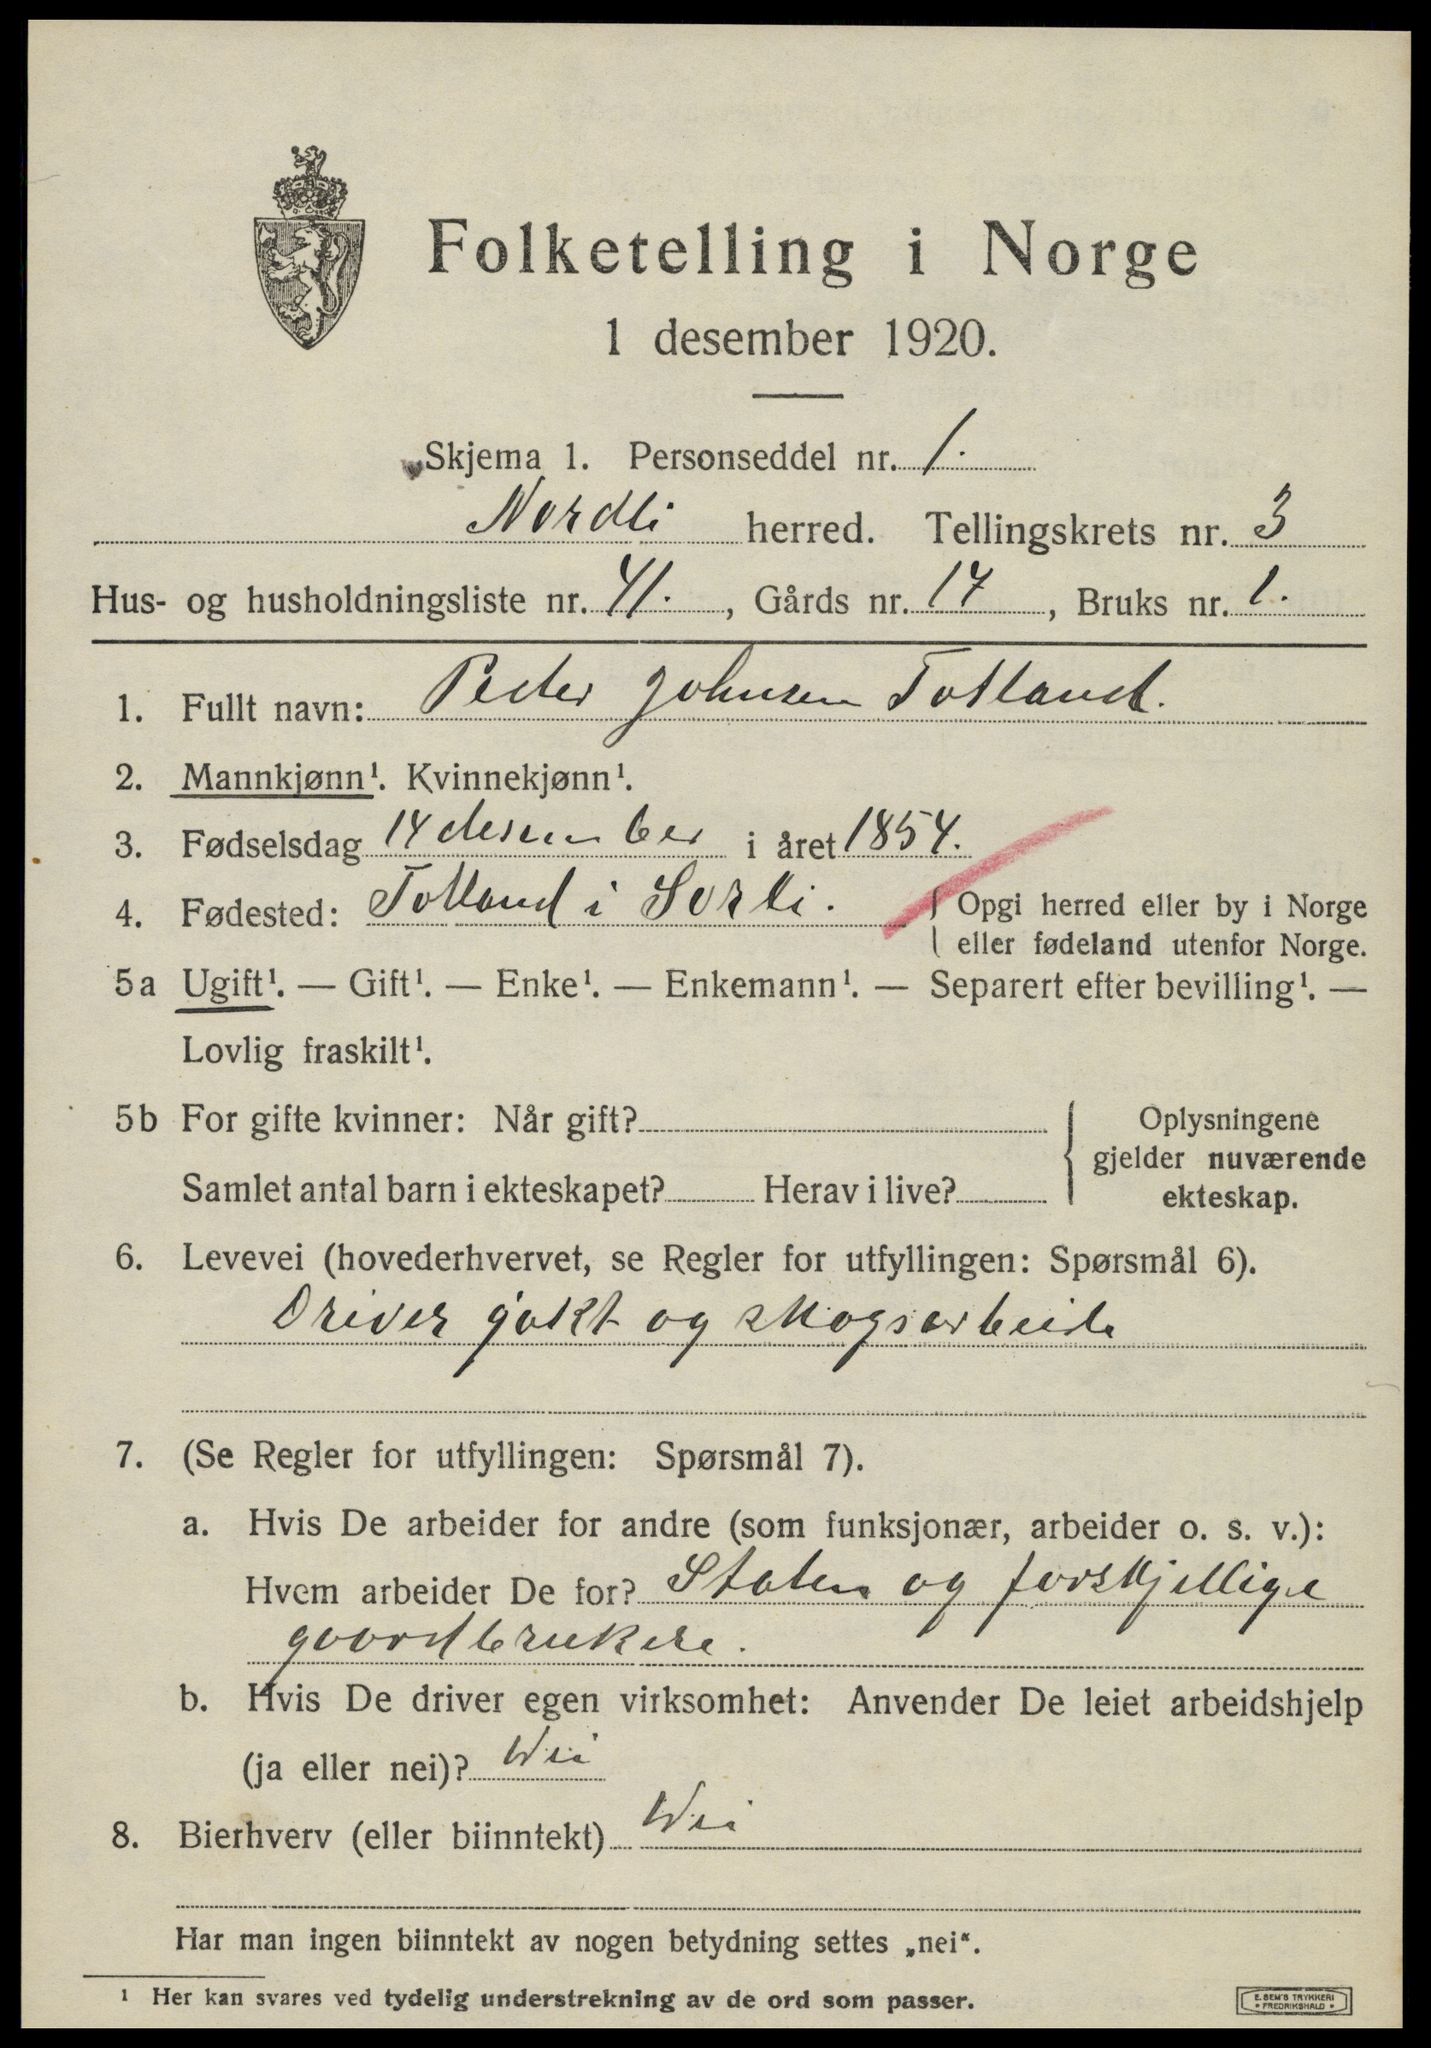 Folketelling i Norge
1 desember 1920.
Skjema 1. Personseddel nr. 1.
Nordli herred. Tellingskrets nr. 3
Hus- og husholdningsliste nr. 41., Gårds nr. 17, Bruks nr. 1.
1. Fullt navn: Peder Johnsen Totland.
2. Mannkjønn¹. Kvinnekjønn¹.
3. Fødselsdag 14 desember i året 1854.
4. Fødested: Totland i Sørli. { Opgi herred eller by i Norge
eller fødeland utenfor Norge.
5a Ugift¹. — Gift¹. — Enke¹. — Enkemann¹. — Separert efter bevilling¹. —
Lovlig fraskilt¹.
5b For gifte kvinner: Når gift?
Samlet antal barn i ekteskapet? Herav i live?
{ Oplysningene
gjelder nuværende
ekteskap.
6. Levevei (hovederhvervet, se Regler for utfyllingen: Spørsmål 6).
Driver jakt og skogsarbeide
7. (Se Regler for utfyllingen: Spørsmål 7).
a. Hvis De arbeider for andre (som funksjonær, arbeider o. s. v.):
Hvem arbeider De for? Staten og forskjellige
gaardbrukere.
b. Hvis De driver egen virksomhet: Anvender De leiet arbeidshjelp
(ja eller nei)? Nei
8. Bierhverv (eller biinntekt) Nei
Har man ingen biinntekt av nogen betydning settes „nei“.
¹ Her kan svares ved tydelig understrekning av de ord som passer.
E. SEM'S TRYKKERI
• FREDRIKSHALD •